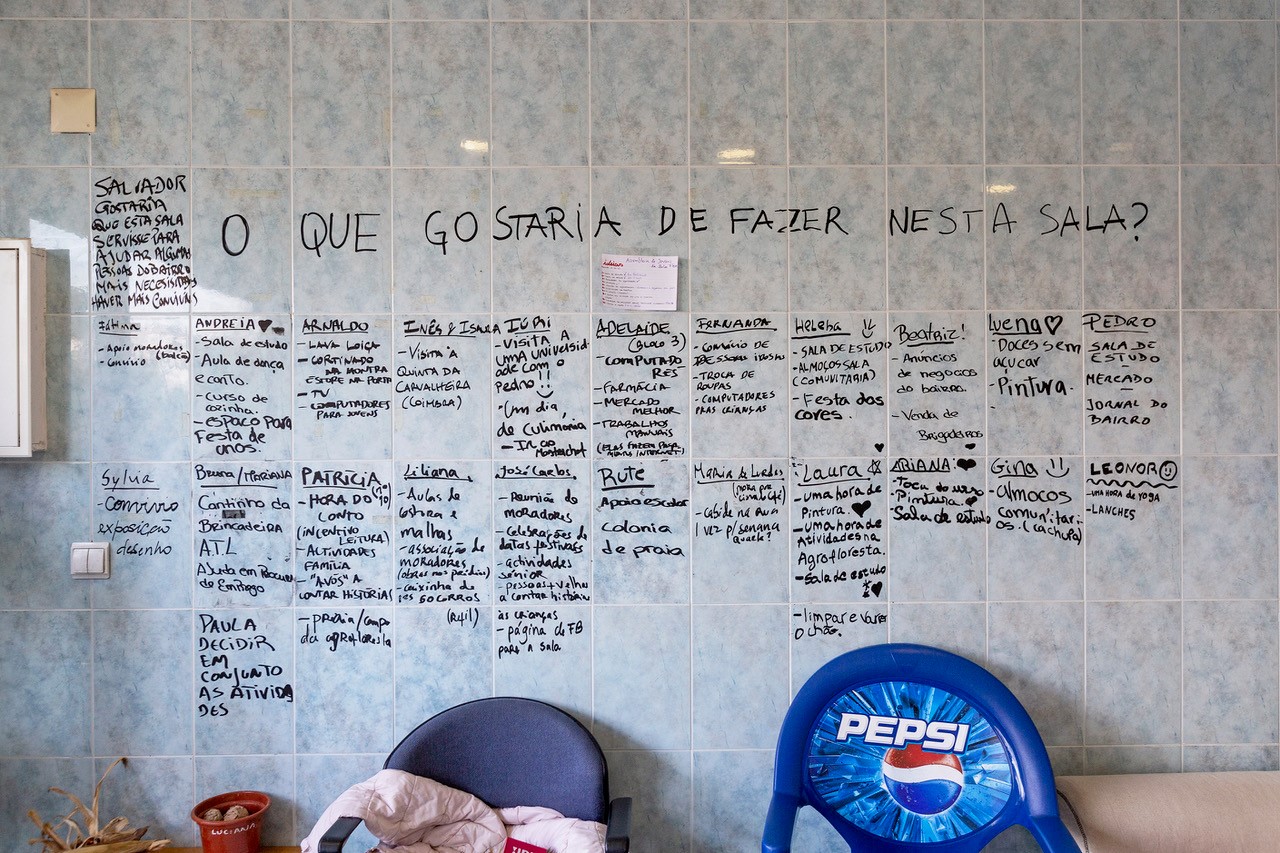 O QUE GOSTARIA DE FAZER NESTA SALA?
SALVADOR
GOSTARIA
QUE ESTA SALA
SERVISSE PARA
AJUDAR ALGUMAS
PESSOAS DO BAIRRO
MAIS NECESSITADAS
HAVER MAIS CONVIVIOS
Fátima
- Apoio moradores
- Convívio
ANDREIA
- Sala de estudo
- Aula de dança
e canto.
- curso de
cozinha.
- espaço para
Festa de
anos.
ARNALDO
- LAVA LOIÇA
- CORTINADO
NA MONTRA
ESTORE NA PORTA
- TV
- COMPUTADORES
PARA JOVENS
INÊS & ISAURA
- VISITA À
QUINTA DA
CARVALHEIRA
(COIMBRA)
IÚRI
- VISITA A
UMA UNIVERSID
ADE COM O
Pedro!!
- Um dia,
de Culimonia
- IR ao
Mosterchat
ADELAIDE
(BLOCO 3)
- COMPUTADO
RES
- FARMÁCIA
- MERCADO
MELHOR
- TRABALHOS
MANUAIS
FERNANDA
- CONVÍVIO DE
PESSOAS IDOSAS
- TROCA DE
ROUPAS
- COMPUTADORES
PRAS CRIANÇAS
Helena
- SALA DE ESTUDO
- ALMOÇOS SALA
(COMUNITÁRIA)
- Festa das
cores.
Beatriz!
- Anúncios
de negocios
do bairro.
- Venda de
Brigadeiros
Luena
- Doces sem
açucar
- Pintura.
PEDRO
SALA DE
ESTUDO
MERCADO
JORNAL DO
BAIRRO
Sylvia
- Convivio
exposição
desenho
Bruna/Mariana
Cantinho da
Brincadeira
A.T.L
Ajuda em Procura
de Emprego
PATRÍCIA
- HORA DO
CONTO
(INCENTIVO
LEITURA)
- ACTIVIDADES
FAMÍLIA
- "AVÓS" A
CONTAR HISTÓRIAS
- praia/campo
da agrofloresta
Liliana
- Aulas de
costura e
malhas
- associação de
moradores
(obras nos prédios)
- caixinha de
1ºs SOCORROS
José Carlos
- Reunião de
moradores
- Celebrações de
datas festivas
- actividades
sénior
- pessoas + velhas
a contar histórias
às crianças
- página de FB
para a sala
RUTE
Apoio escolar
colonia
de praia
Maria de Lurdes
- cabide na rua
1 vez p/semana
Laura
- uma hora de
Pintura.
- uma hora de
Atividades na
Agrofloresta.
- Sala de estudo
- limpar e varrer
o chão.
ARIANA:
- Toca do urso
- Pintura
- Sala de estudo
Gina
- almoços
comunitári-
os. (cachupa)
LEONOR
- UMA HORA de YOGA
- LANCHES
PAULA
DECIDIR
EM
CONJUNTO
AS ATIVIDA
DES
LUCIANA
PEPSI